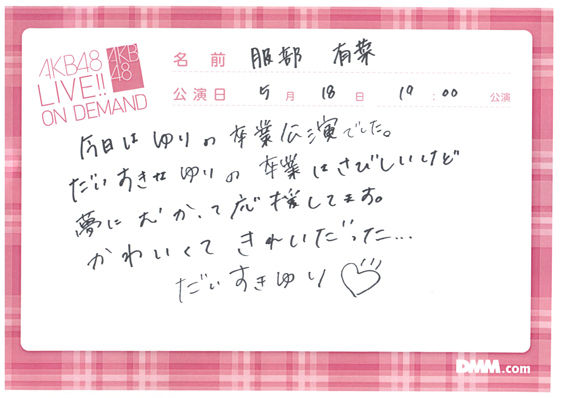 AKB48
LIVE!!
ON DEMAND
AKB
48
名前 服部 有菜
公演日 5月 18日 19:00 公演
今日は ゆりの 卒業公演でした。
だいすきな ゆりの 卒業は さびしいけど
夢に むかって 応援してます。
かわいくて きれいだった…
だいすきゆり♡
DMM.com